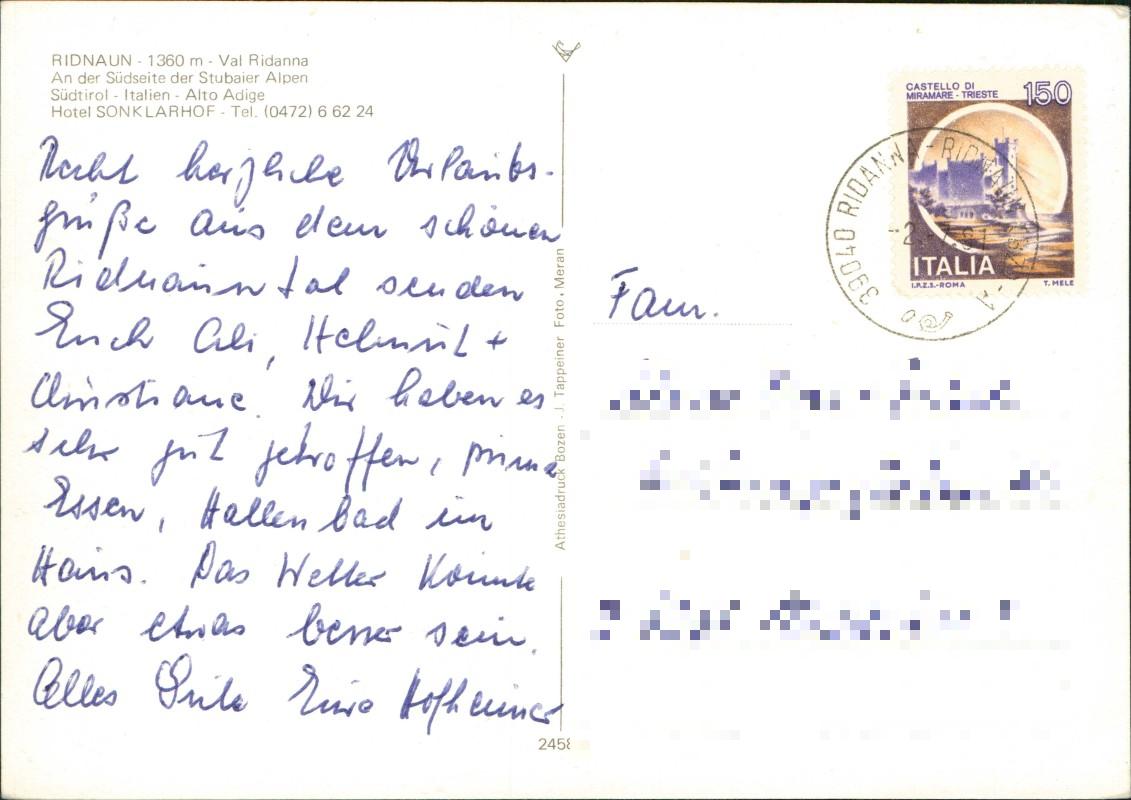 RIDNAUN - 1360 m - Val Ridanna
An der Südseite der Stubaier Alpen
Südtirol - Italien - Alto Adige
Hotel SONKLARHOF - Tel. (0472) 6 62 24
Recht herzliche Urlaubs-
grüße aus dem schönen
Ridnauntal senden
Euch Uli, Helmut +
Christiane. Wir haben es
sehr gut getroffen, prima
Essen, Hallenbad im
Haus. Das Wetter könnte
aber etwas besser sein.
Alles Gute Eure Hofheimer
Athesiadruck Bozen - J. Tappeiner Foto, Meran
2458
CASTELLO DI
MIRAMARE - TRIESTE
150
ITALIA
I.P.Z.S.-ROMA T. MELE
39040 RIDANNA - RIDNAUN
Fam.